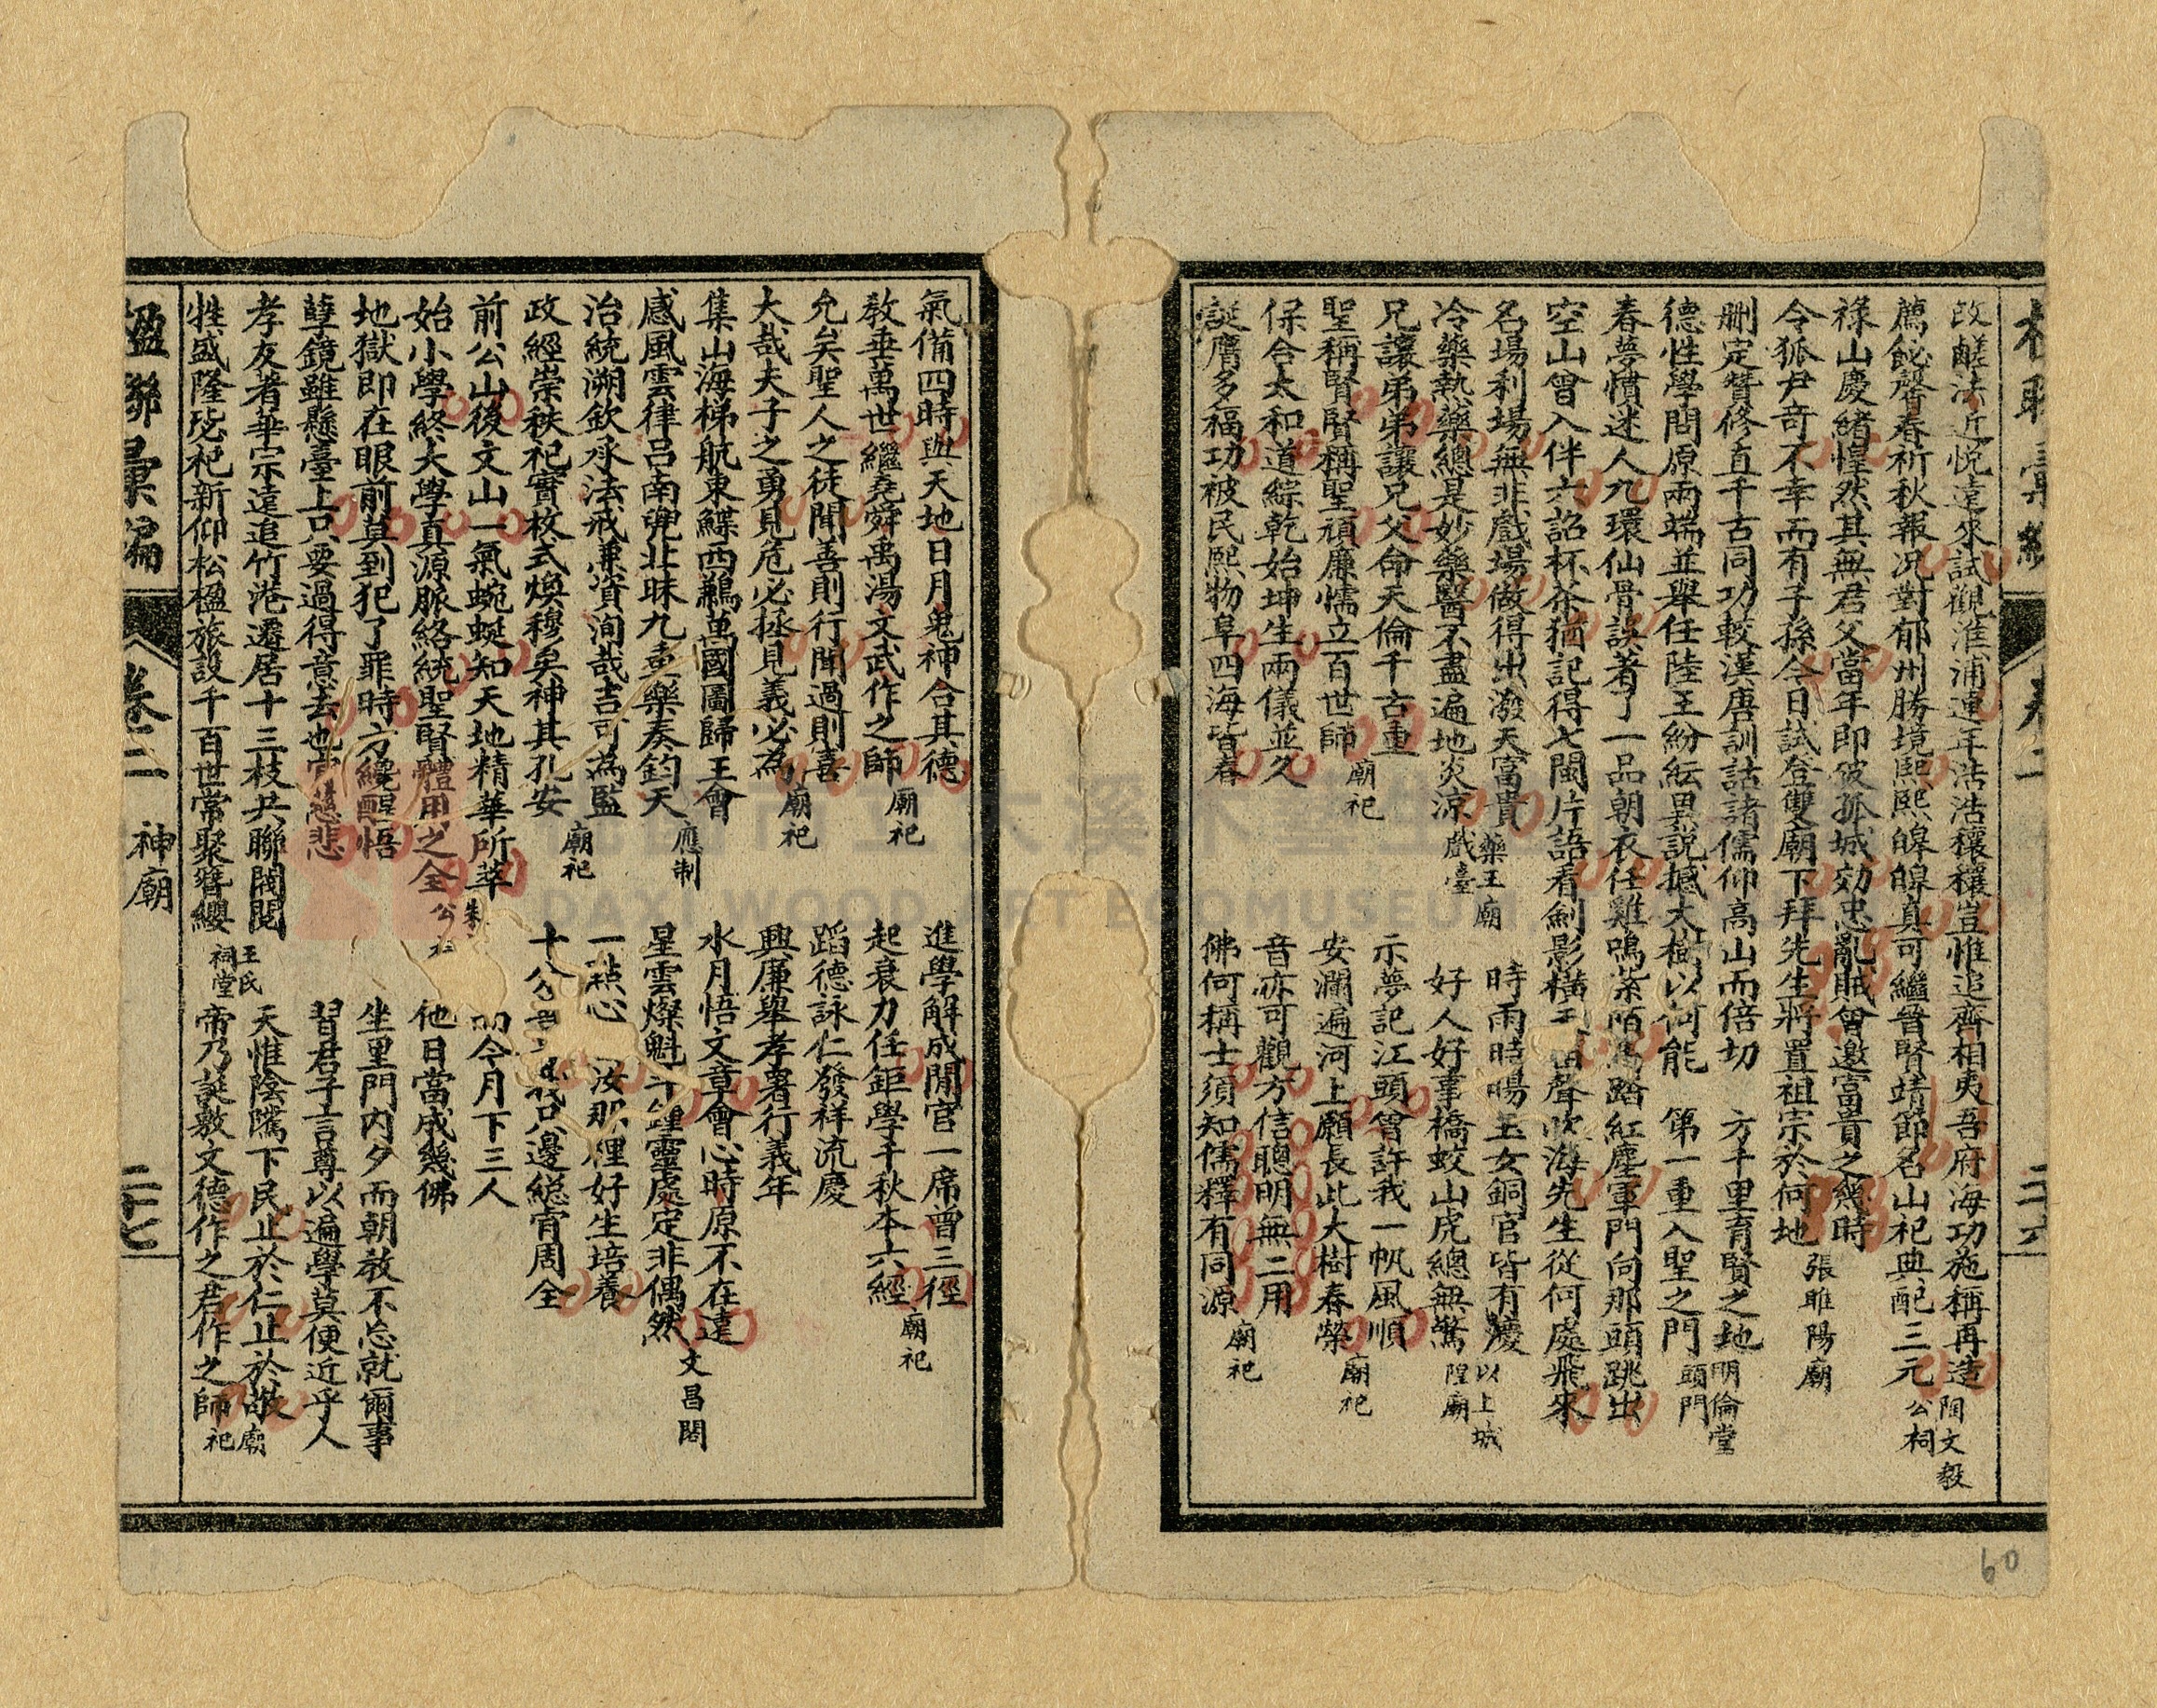 改鹺法近悅遠來試觀淮浦連年浩浩穰穰豈惟追齊相夷吾府海功施稱再造 陶文毅
薦飶馨春祈秋報况對郁州勝境熙熙皥皥真可繼晉賢靖節名山祀典配三元 公祠
祿山慶緒惺然其無君父當年即破孤城効忠亂賊曾邀富貴之幾時
令狐尹奇不幸而有子孫今日試登雙廟下拜先生將置祖宗於何地 張睢陽廟
刪定贊修直千古同功較漢唐訓詁諸儒仰高山而倍切 方千里育賢之地 明倫堂
德性學問原兩端並舉任陸王紛紜異說撼大樹以何能 第一重入聖之門 頭門
春夢憒迷人九環仙骨誤著了一品朝衣任雞鳴紫陌馬踏紅塵軍門向那頭跳出
空山曾入伴六詔杯茶猶記得七閩片語看劍影橫 聲吹海先生從何處飛來
名場利場無非戲場做得出潑天富貴 藥王廟 時雨時暘玉女銅官皆有慶 以上城
冷藥熱藥總是妙藥醫不盡遍地炎涼 戲臺 好人好事橋蛟山虎總無驚 隍廟
兄讓弟弟讓兄父命天倫千古重 示夢記江頭曾許我一帆風順
聖稱賢賢稱聖頑廉懦立百世師 廟祀 安瀾遍河上願長此大樹春榮 廟祀
保合太和道綜乾始坤生兩儀並久 音亦可觀方信聰明無二用
誕膺多福功被民熙物阜四海皆春 佛何稱士須知儒釋有同源 廟祀
卷二
60
氣備四時與天地日月鬼神合其德 進學解成閒官一席曾三徑
教垂萬世繼堯舜禹湯文武作之師 廟祀 起衰力任鉅學千秋本六經 廟祀
允矣聖人之徒聞善則行聞過則喜 蹈德詠仁發祥流慶
大哉夫子之勇見危必拯見義必為 廟祀 興廉舉孝署行義年
集山海梯航東鰈西鶼萬國圖歸王會 水月悟文章會心時原不在遠
感風雲律呂南兜北昧九奏樂奏鈞天 應制 星雲燦魁斗鍾靈處定非偶然 文昌閣
治統溯欽承法戒兼資洵哉吉可為監 一點心 汝那裡好生培養
政經崇秩祀實枚式煥穆矣神其孔安 廟祀 十分 我只邊縂宵周全
前公山後文山一氣蜿蜒知天地精華所萃 朱 今月下三人
始小學終大學真源脈絡統聖賢體用之全 公 他日當成幾佛
地獄即在眼前莫到犯了罪時方纔醒悟 坐里門內夕而朝教不忘就爾事
孽鏡雖懸臺上只要過得意去也當慈悲 習君子言尊以遍學莫便近乎人
孝友者華宗遠追竹港遷居十三枝共聯閥閱 王氏 天惟陰騭下民止於仁止於敬 廟
牲盛隆毖祀新仰松楹旅設千百世常聚簪纓 祠堂 帝乃誕敷文德作之君作之師 祀
楹聯彙編 卷二 神廟 二十七